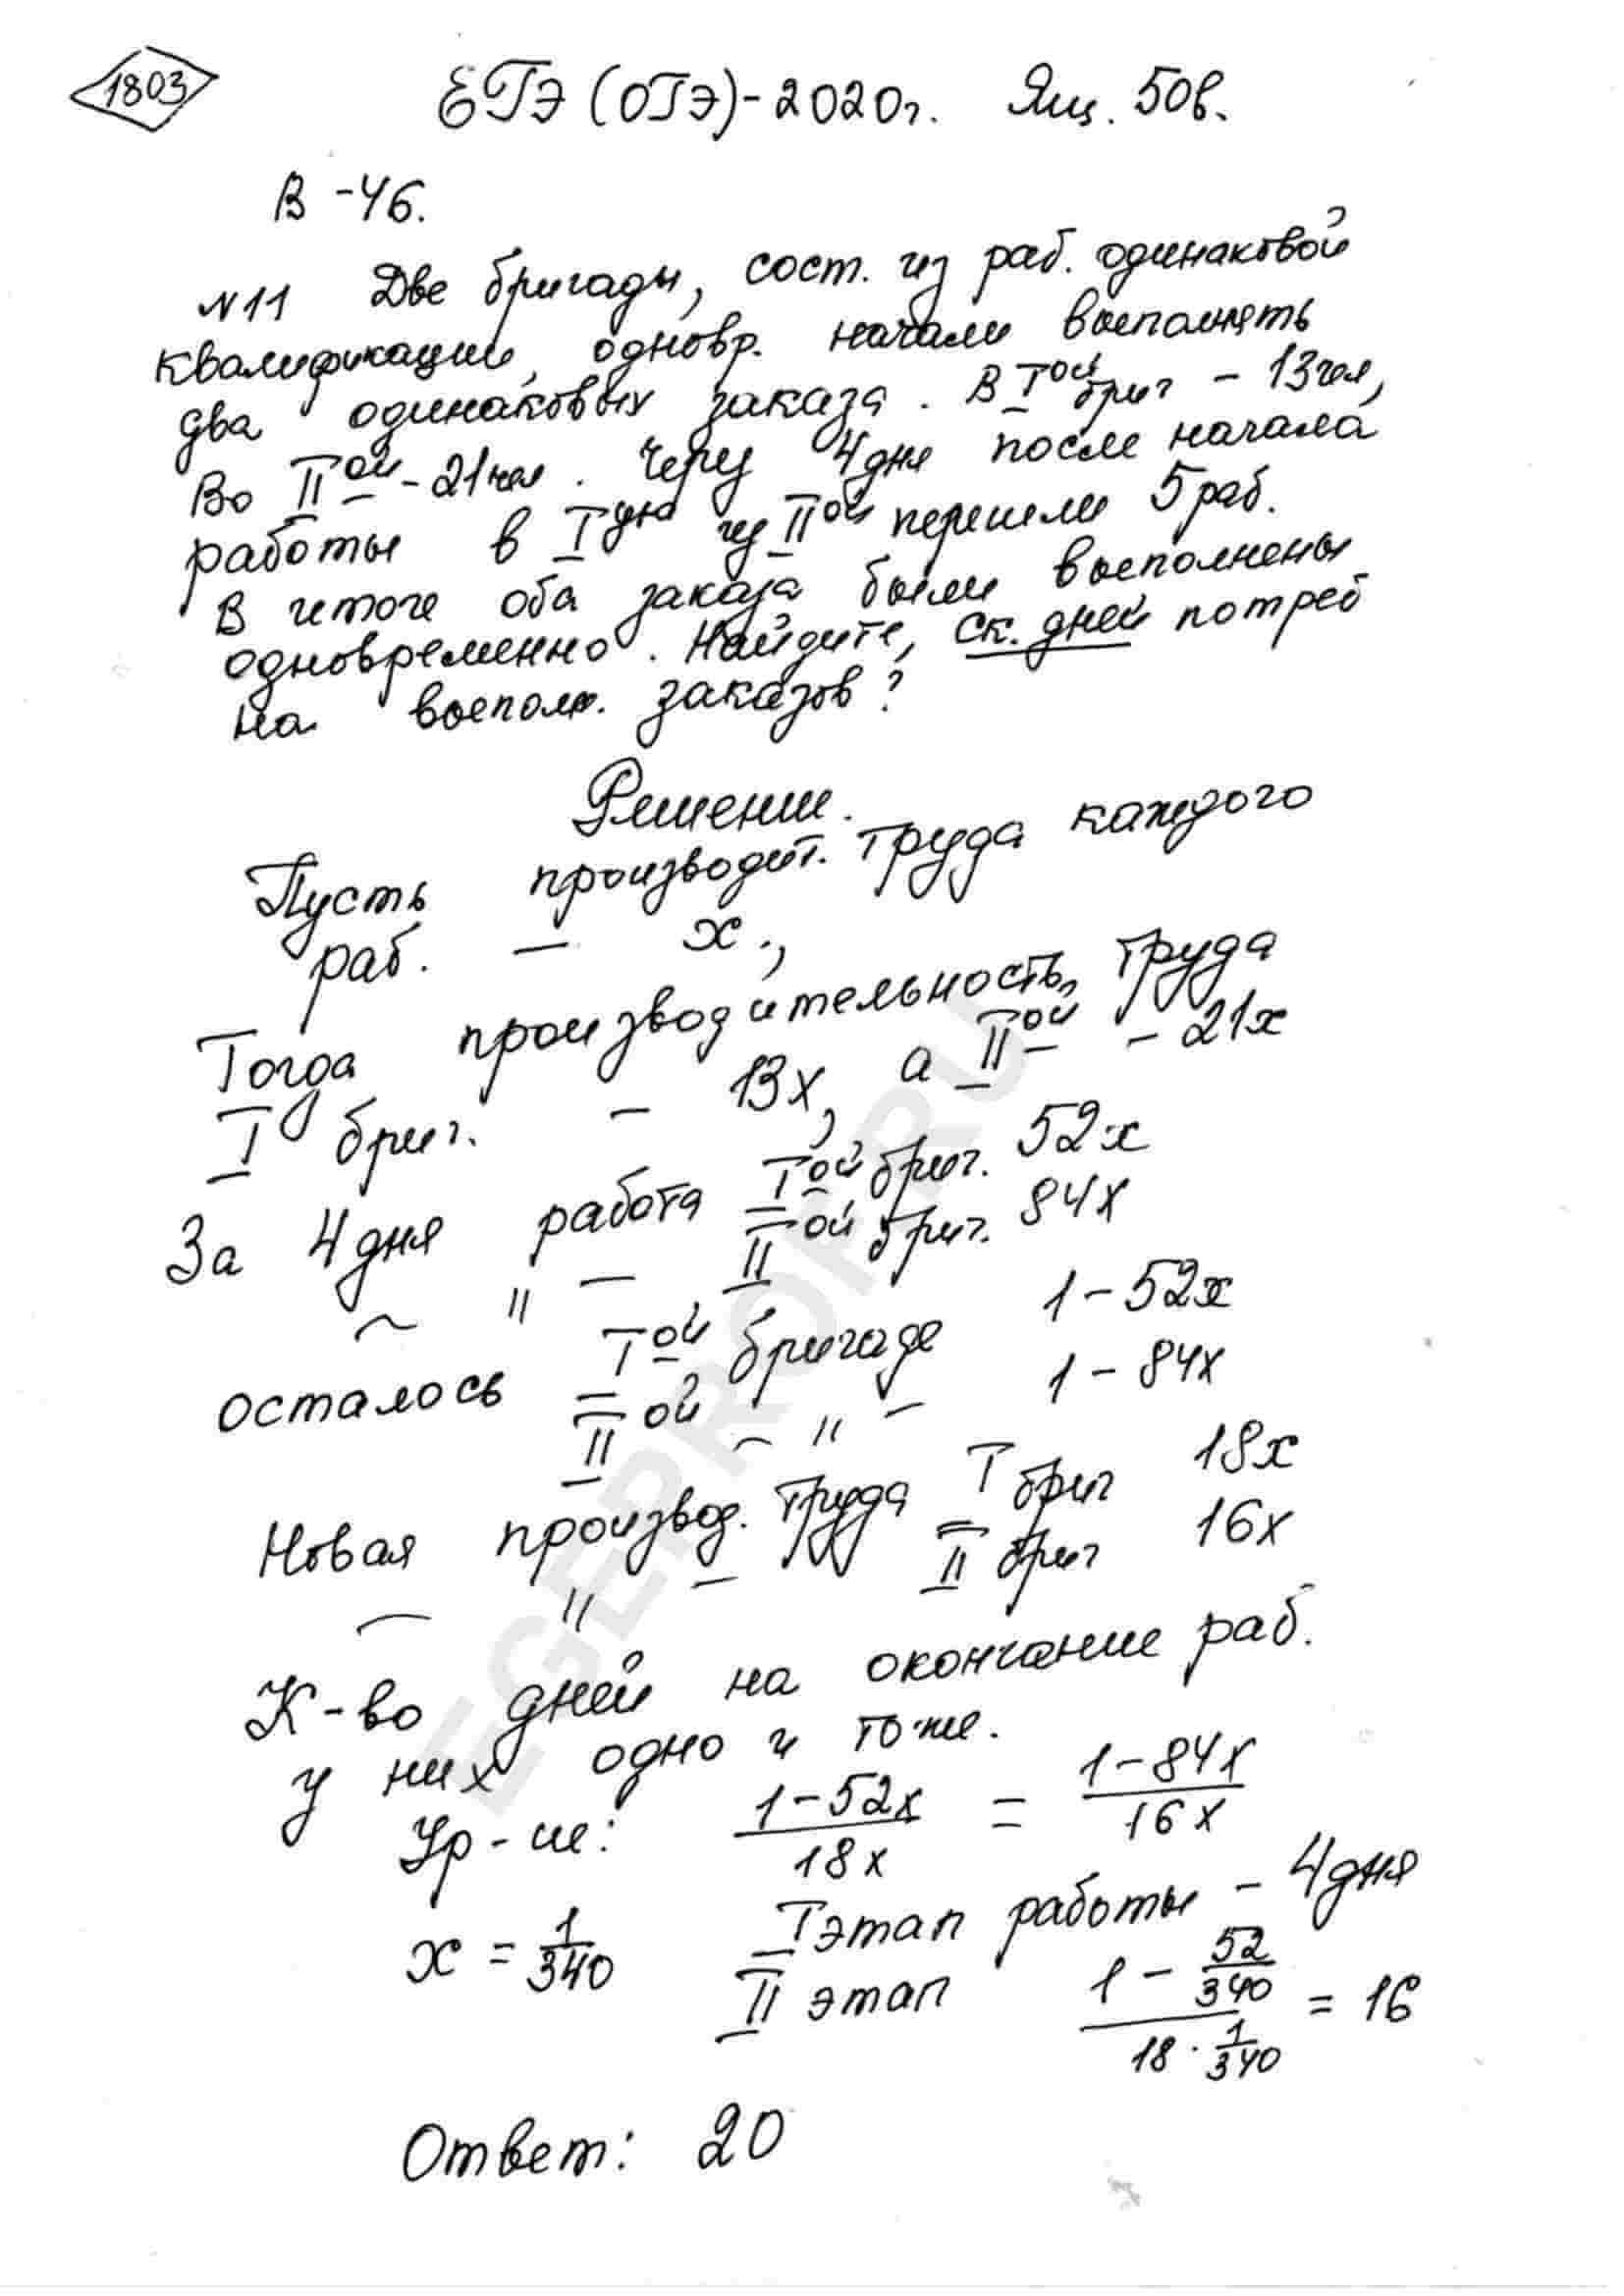 1803
ЕГЭ (ОГЭ)-2020г. Ящ. 50в.
В -46.
№11 Две бригады, сост. из раб. одинаковой
квалификации, одновр. начали выполнять
два одинаковых заказа. В I ой бриг - 13чел,
Во II ой - 21чел. Через 4дня после начала
работы в I ую из II ой перешли 5 раб.
В итоге оба заказа были выполнены
одновременно. Найдите, ск. дней потреб
на выполн. заказов?
Решение.
Пусть производит. труда каждого
раб. — х.,
Тогда производительность труда
I бриг. — 13х, а II ой - 21х
За 4дня работа I ой бриг. 52х
~ " — II ой бриг. 84х
осталось I ой бригаде 1 - 52х
II ой ~ " - 1 - 84х
Новая производ. труда I бриг 18х
— " — II бриг 16х
К-во дней на окончание раб.
у них одно и то же.
Ур-ие: (1-52х)/(18х) = (1-84х)/(16х)
х = 1/340 I этап работы - 4дня
II этап (1 - 52/340)/(18 · 1/340) = 16
Ответ: 20
EGEPROF.RU